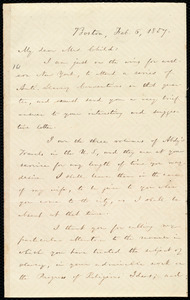 Boston, Feb. 6, 1857.
My dear Mrs. Child:
I am just on the wing for west-
ern New York, to attend a series of
Anti-Slavery Conventions in that quar-
ter, and send you a very brief
answer to your interesting and sugges-
tive letter.
I own the three volumes of Abdy's
Travels in the U. S., and they are at your
service for any length of time you may
desire. I shall leave them in the care
of my wife, to be given to you when
you come to the city, as I shall be
absent at that time.
I thank you for calling my
particular attention to the manner in
which you have treated the subject of
slavery, in your admirable work on
the Progress of Religious Ideas; and